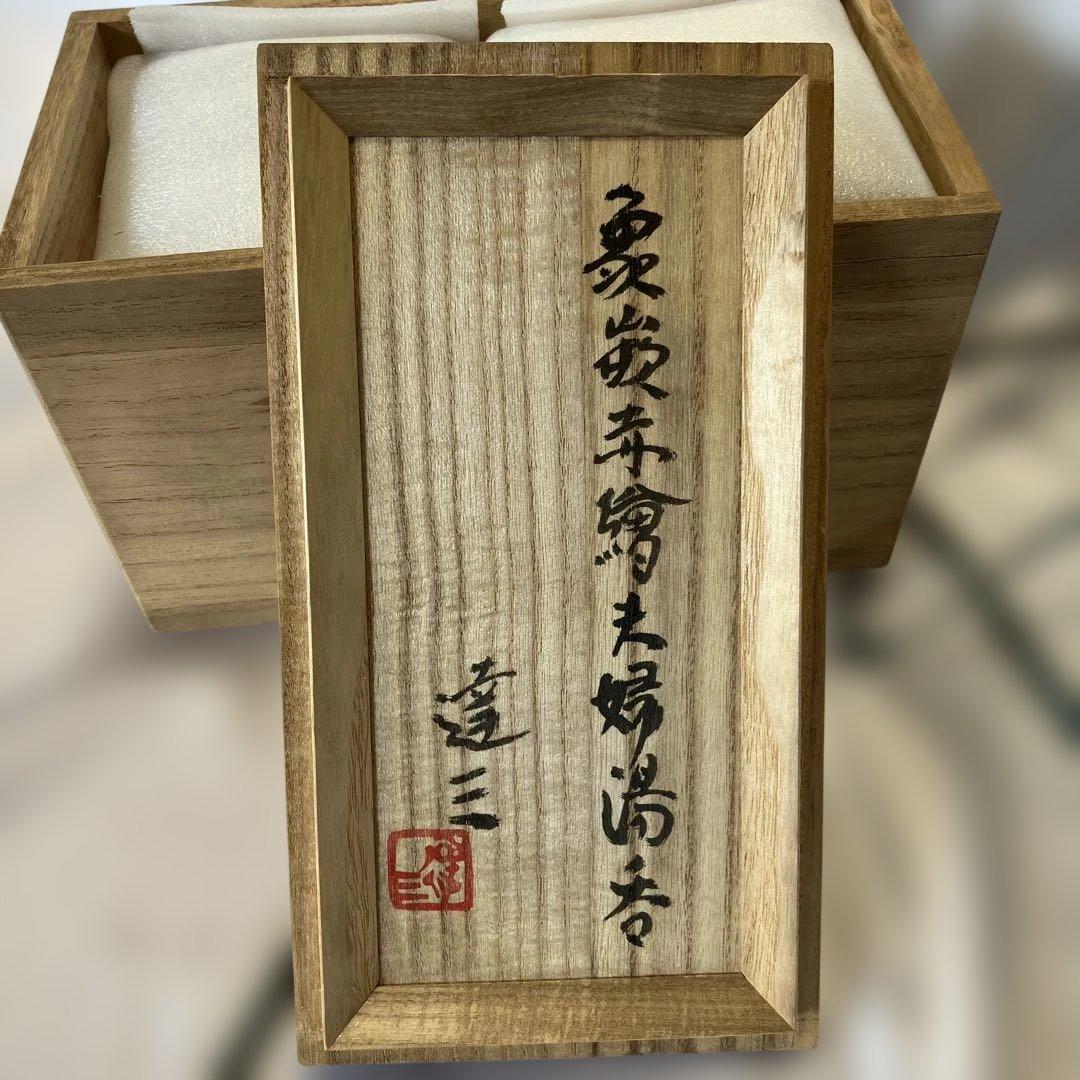 象嵌赤繪夫婦湯呑
達三